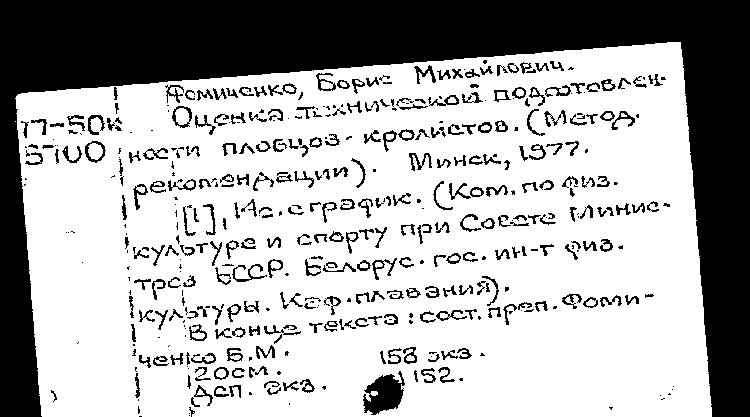 Фомиченко, Борис Михайлович.
77-50к Оценка технической подготовлен-
5700 ности пловцов-кролистов. (Метод.
рекомендации). Минск, 1977.
[1], 14с. с график. (Ком. по физ.
культуре и спорту при Совете Минис-
тров БССР. Белорус. гос. ин-т физ.
культуры. Каф. плавания).
В конце текста: сост. преп. Фоми-
ченко Б.М.
20см. 158 экз.
Деп. экз. 1152.